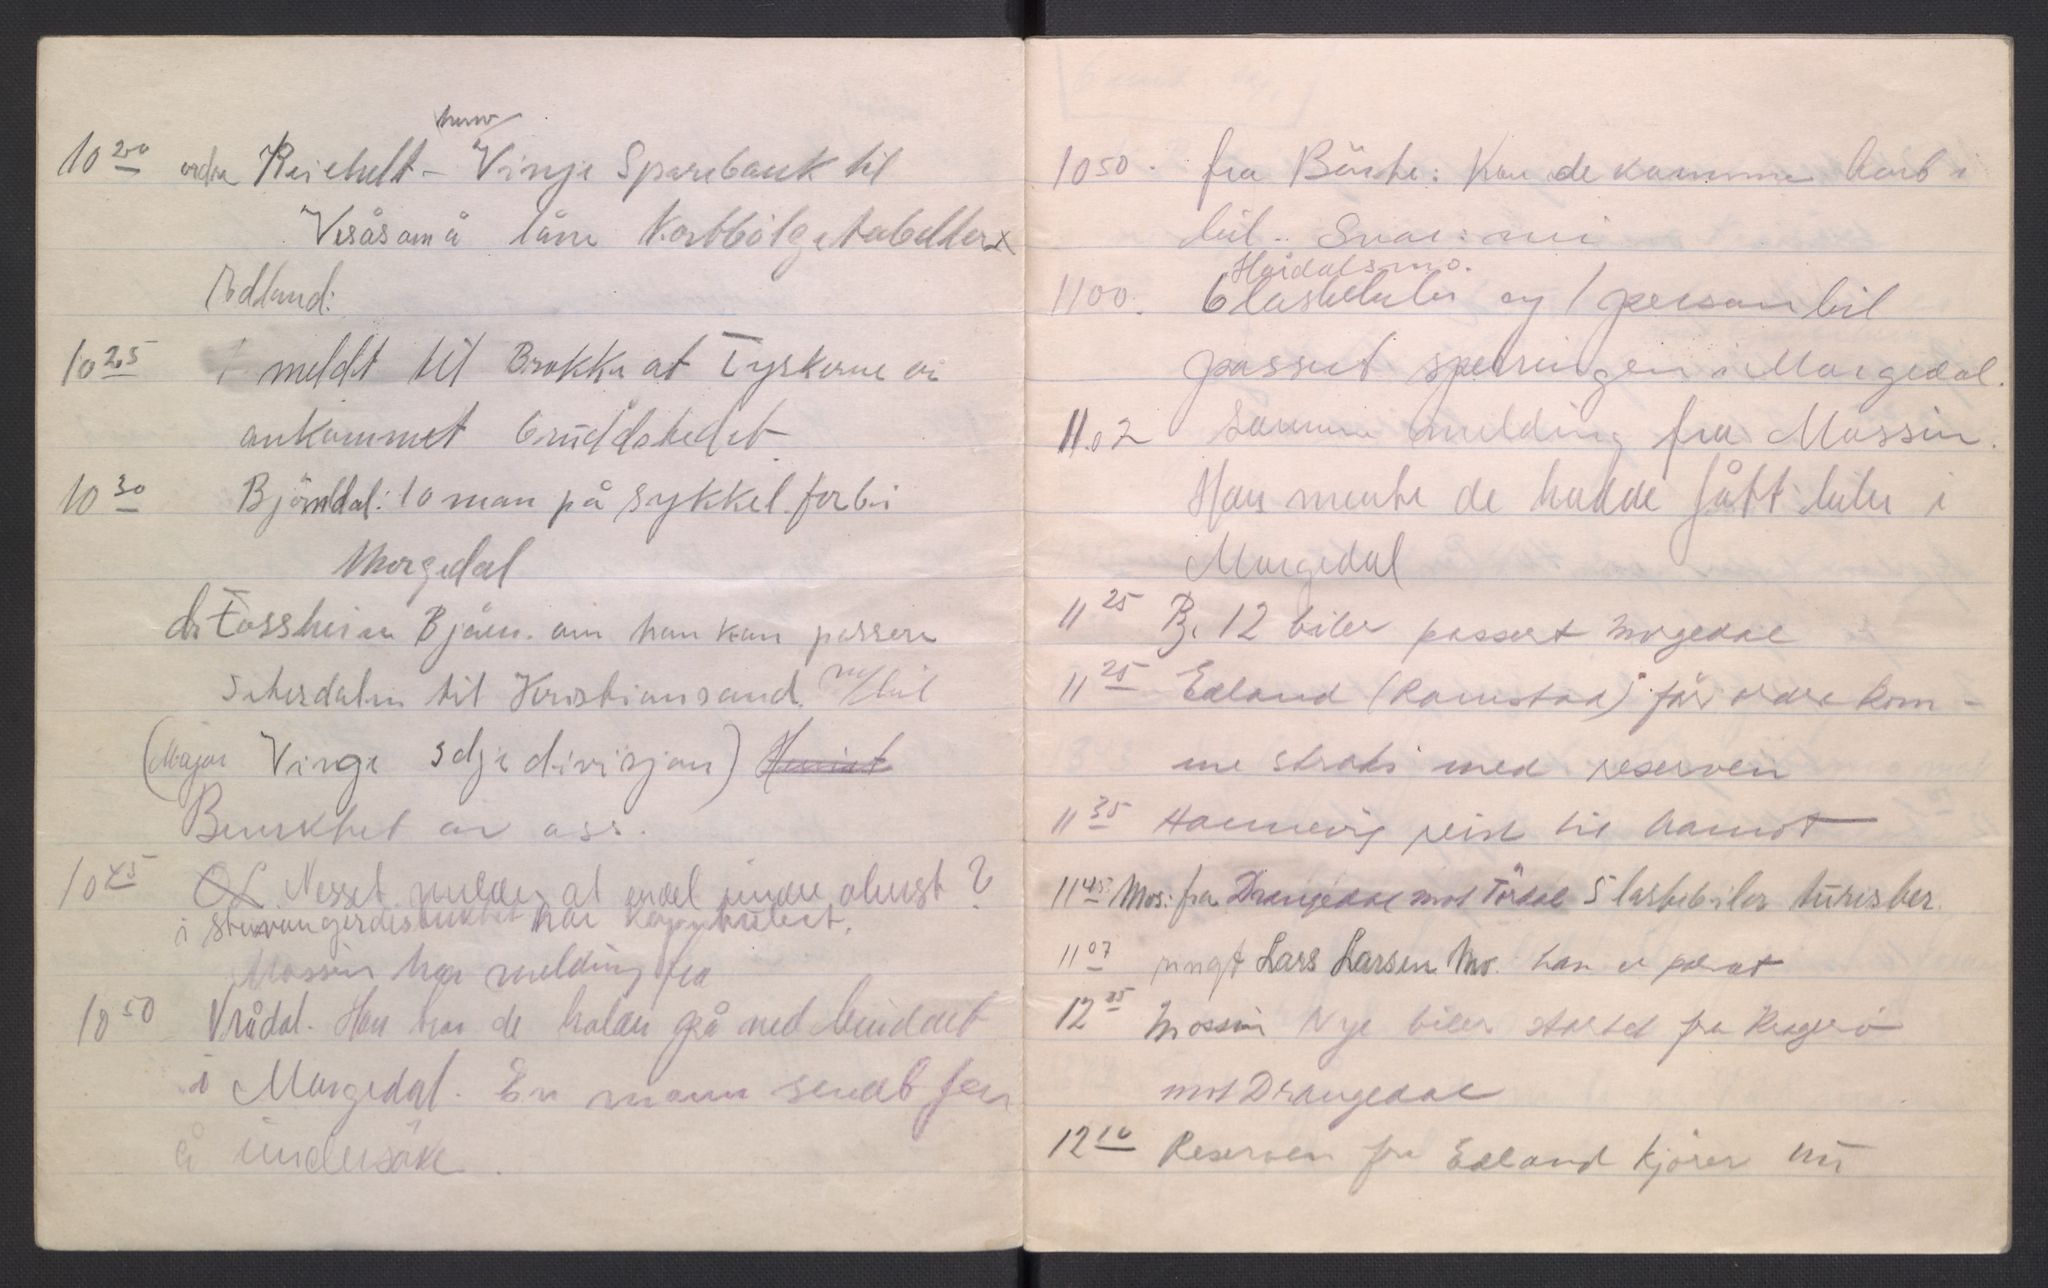 10 20 ordre Reichelt - Vinje Sparebank til
Vesåsom å låne Kortbølgetabeller x
Edland:
10 25 meldt til Brokke at Tyskerne er
ankommet bruddstedet
10 30 Bjørndal: 10 man på sykkel forbi
Morgedal
dr Fossheim Bjåen. om han kan passere
Setesdalen til Kristiansand m/bil
(Major Vinge 3dje divisjon)
av oss.
10 45 Nesset melder at endel indre
i stavangerdistriktet har kapitulert.
Mossin har melding fra
10 50 Vrådal. Han har de holder på med bruddet
i Morgedal. En mann sendt for
å undersøke.
10 50. fra Börte: Kan de komme hort i
bil. Svar: nei
Høidalsmo.
11 00. 6 lastebiler og 1 personbil
passert sperringen i Morgedal.
11.02 Samme melding fra Mossin.
Han mente de hadde fått biler i
Morgedal
11 25 Bj. 12 biler passert Morgedal
11 25 Edland (Ramstad) får ordre kom-
me straks med reserven
11 35 Hannevig reist til Åamot
11 45 Mos: fra Drangedal mot Tördal 5 lastebiler turister.
11 07 ringt Lars Larsen Mo. han er parat
12 05 Mossin Nye biler startet fra Kragerö
mot Drangedal
12 10 Reserven fra Edland kjører nu